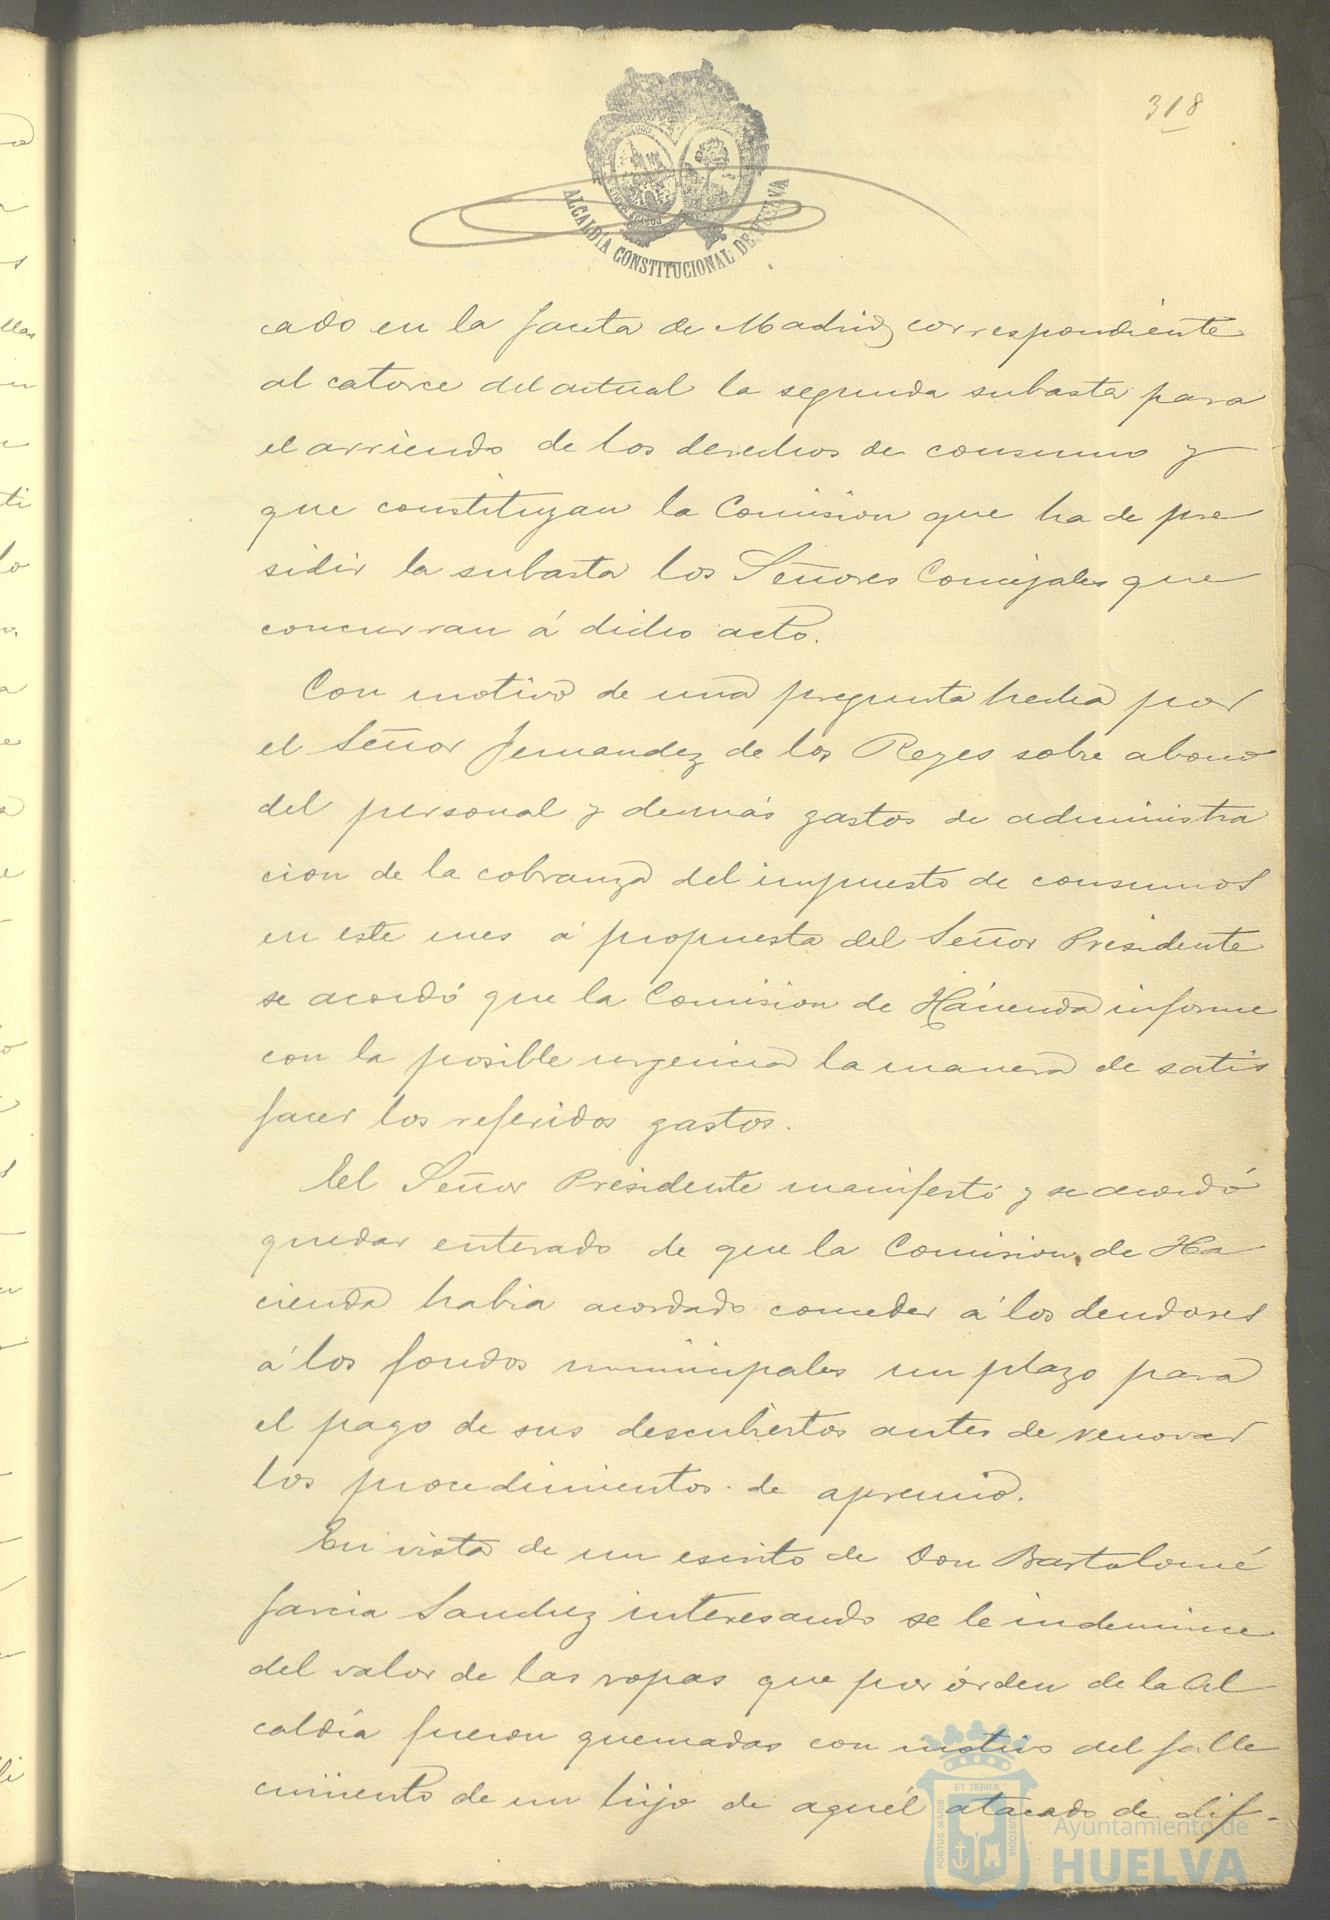 318
ALCALDÍA CONSTITUCIONAL DE HUELVA
cado en la Gaceta de Madrid correspondiente
al catorce del actual la segunda subasta para
el arriendo de los derechos de consumo y
que constituyan la Comision que ha de pre
sidir la subasta los Señores Concejales que
concurran á dicho acto.
Con motivo de una pregunta hecha por
el Señor Fernandez de los Reyes sobre abono
del personal y demás gastos de administra
cion de la cobranza del impuesto de consumos
en este mes á propuesta del Señor Presidente
se acordó que la Comision de Hacienda informe
con la posible urgencia la manera de satis
facer los referidos gastos.
El Señor Presidente manifestó y se acordó
quedar enterado de que la Comision de Ha
cienda habia acordado conceder á los deudores
á los fondos municipales un plazo para
el pago de sus descubiertos antes de renovar
los procedimientos de apremio.
En vista de un escrito de Don Bartolomé
Garcia Sanchez interesando se le indemnice
del valor de las ropas que por órden de la Al
caldía fueron quemadas con motivo del falle
cimiento de un hijo de aquél atacado de dif-
PORTUS MARIS ET TERRÆ CUSTODIA
Ayuntamiento de
HUELVA